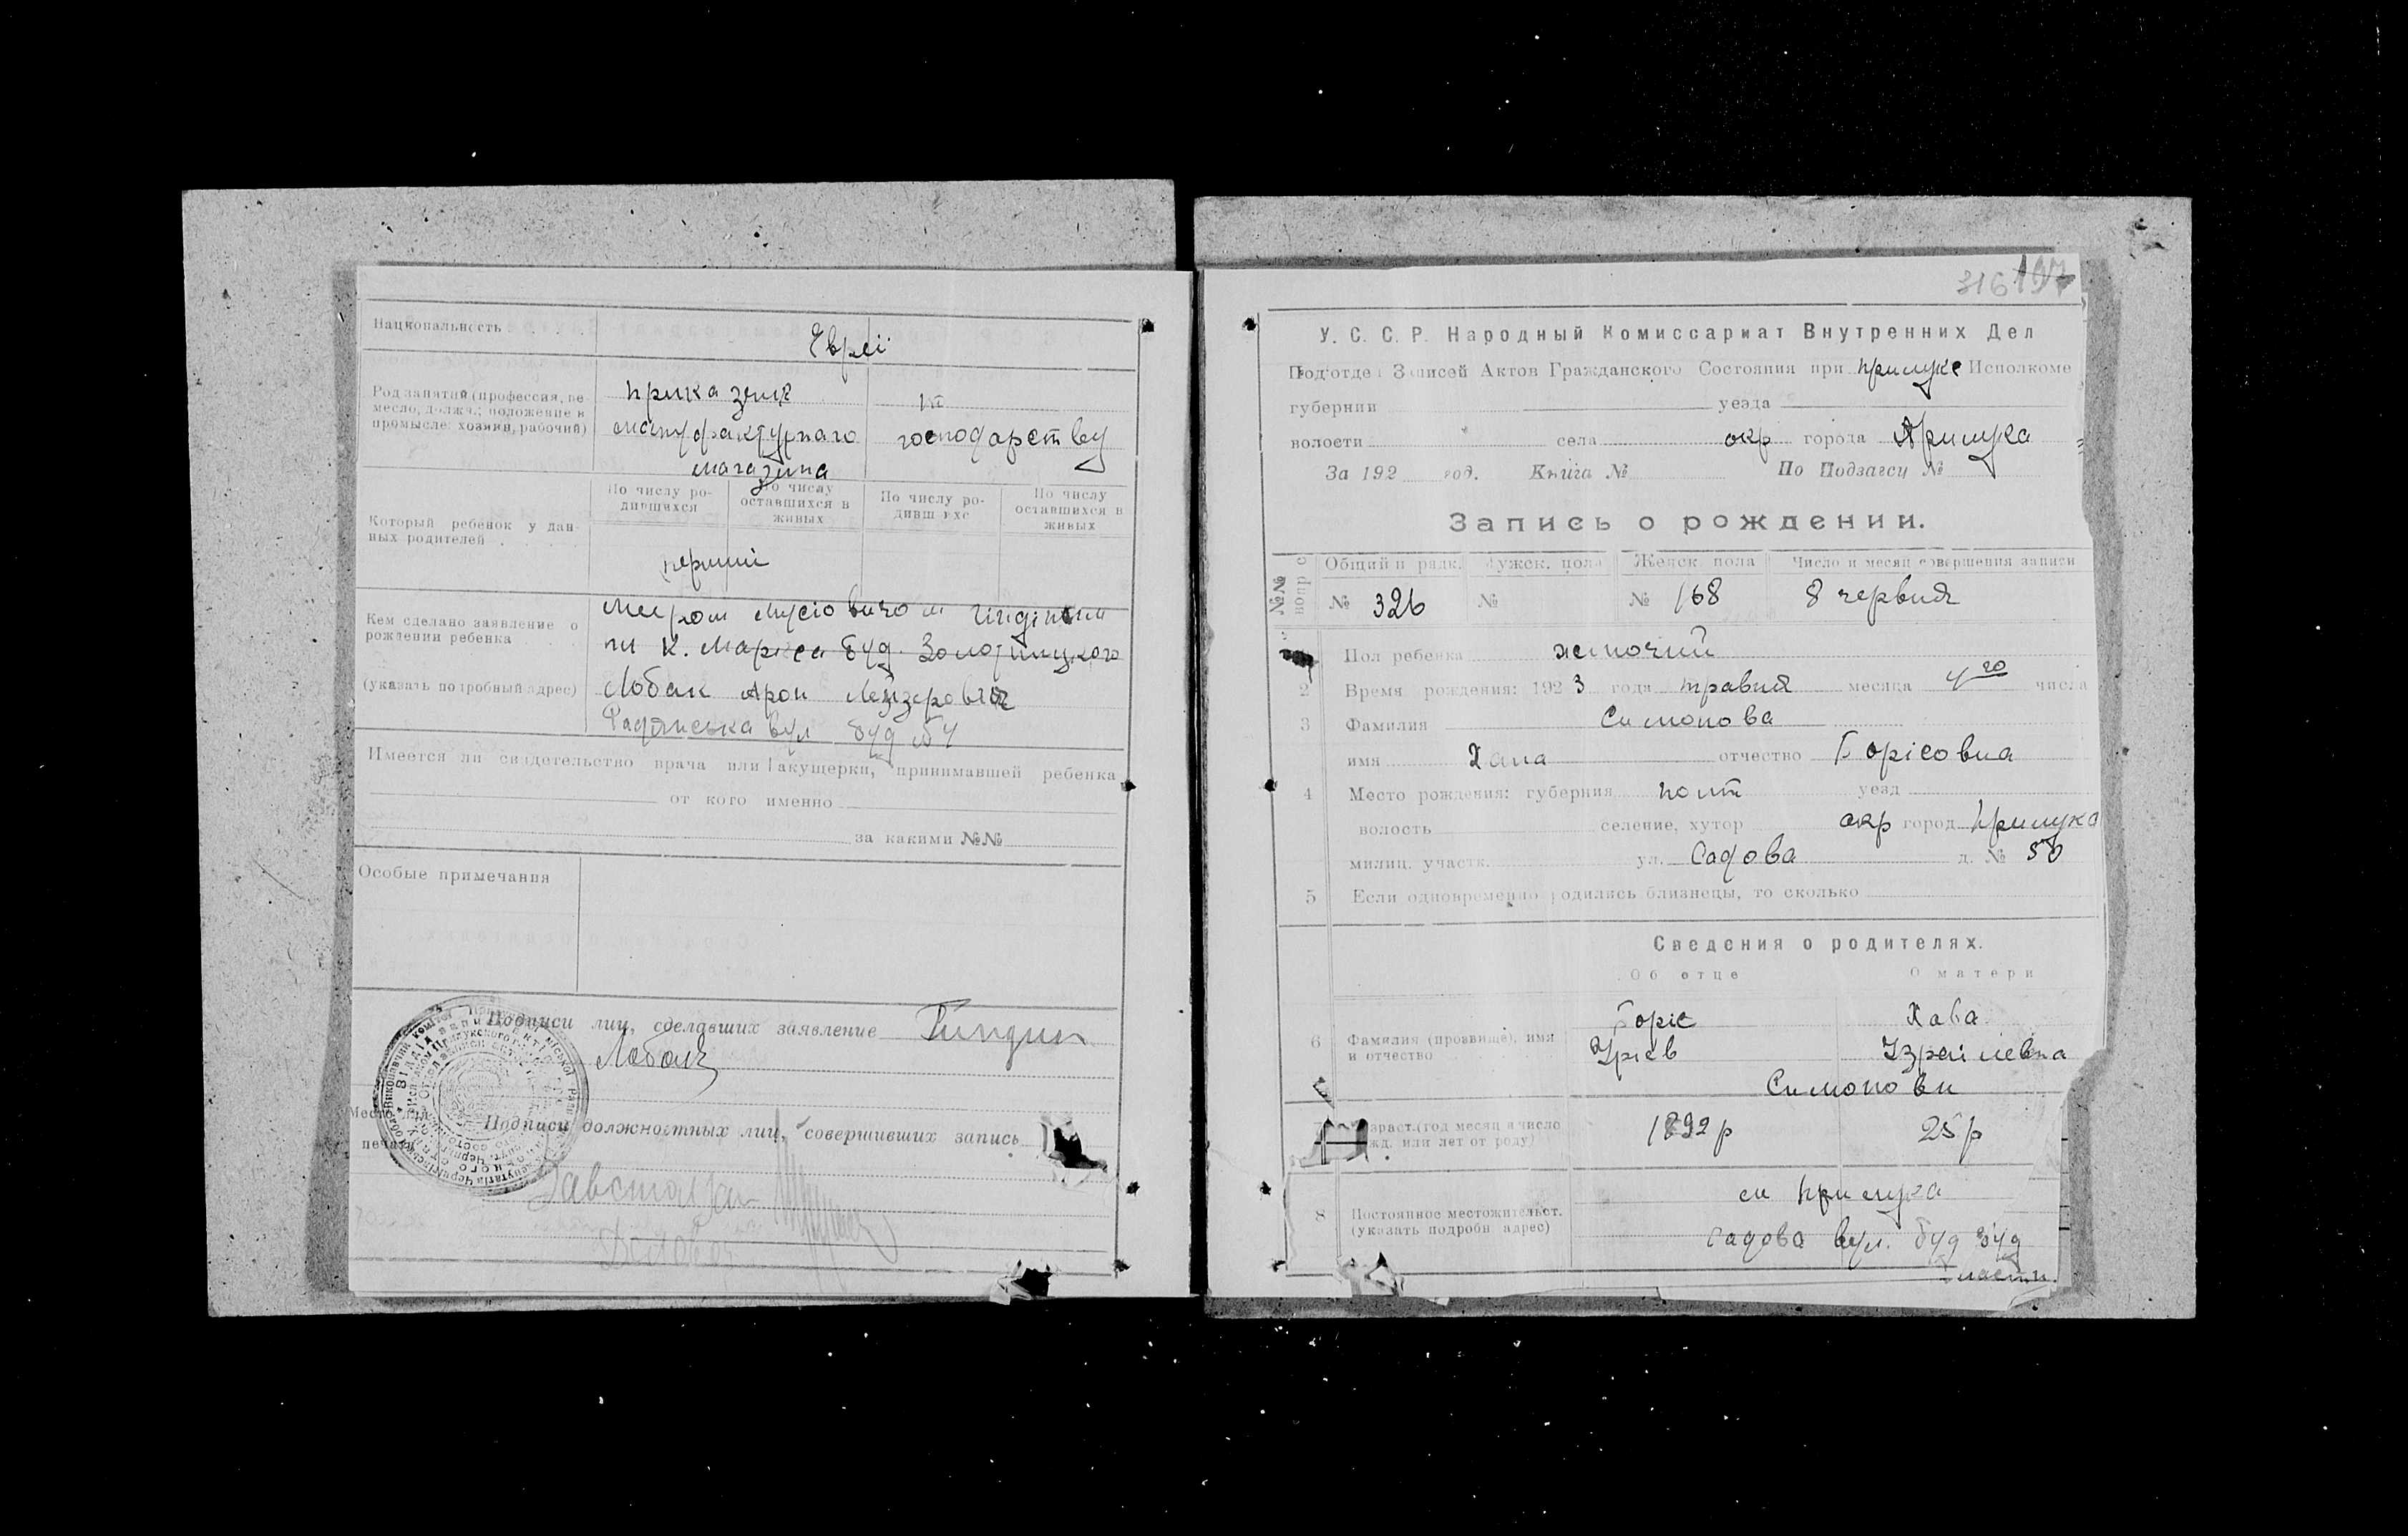 Национальность
Евреї
Род занятий (профессия, ремесло, должн.; положение в промысле: хозяин, рабочий)
приказчик
мануфактурнаго
магазина
господарству
Который ребенок у данных родителей
По числу родившихся
По числу оставшихся в живых
По числу родившихся
По числу оставшихся в живых
перший
Кем сделано заявление о рождении ребенка
(указать подробный адрес)
Меиром Мусіовичом Гиндіним
К. Маркса буд. Золотницкого
Лобак Арон Лейзерович
Радянська вул буд
Имеется ли свидетельство врача или акушерки, принимавшей ребенка
от кого именно
за какими №№
Особые примечания
Подписи лиц, сделавших заявление Гиндин
Лобак
Место для печати
Подписи должностных лиц, совершивших запись
Завстолом
Діловод
316 197
У. С. С. Р. Народный Комиссариат Внутренних Дел
Подотдел Записей Актов Гражданского Состояния при Прилуке Исполкоме
губернии уезда
волости села окр города Прилука
За 192 год. Книга № По Подзагсу №
Запись о рождении.
№№ вопрос
Общий п рядк. Мужск. пола Женск. пола Число и месяц совершения записи
№ 326 № № 168 8 червня
Пол ребенка жіночий
2 Время рождения: 1923 года травня месяца 4го числа
3 Фамилия Симонова
имя Хана отчество Борісовна
4 Место рождения: губерния полт уезд
волость селение, хутор окр город Прилука
милиц. участк. ул. Садова д. № 50
5 Если одновременно родились близнецы, то сколько
Сведения о родителях.
Об отце О матери
6 Фамилия (прозвище), имя и отчество
Боріс Хава
Уріев Ізраілевна
Симонови
7 Возраст (год месяц и число рожд. или лет от роду)
1892 р 25 р
8 Постоянное местожительст. (указать подробн адрес)
м Прилука
Садова вул. буд